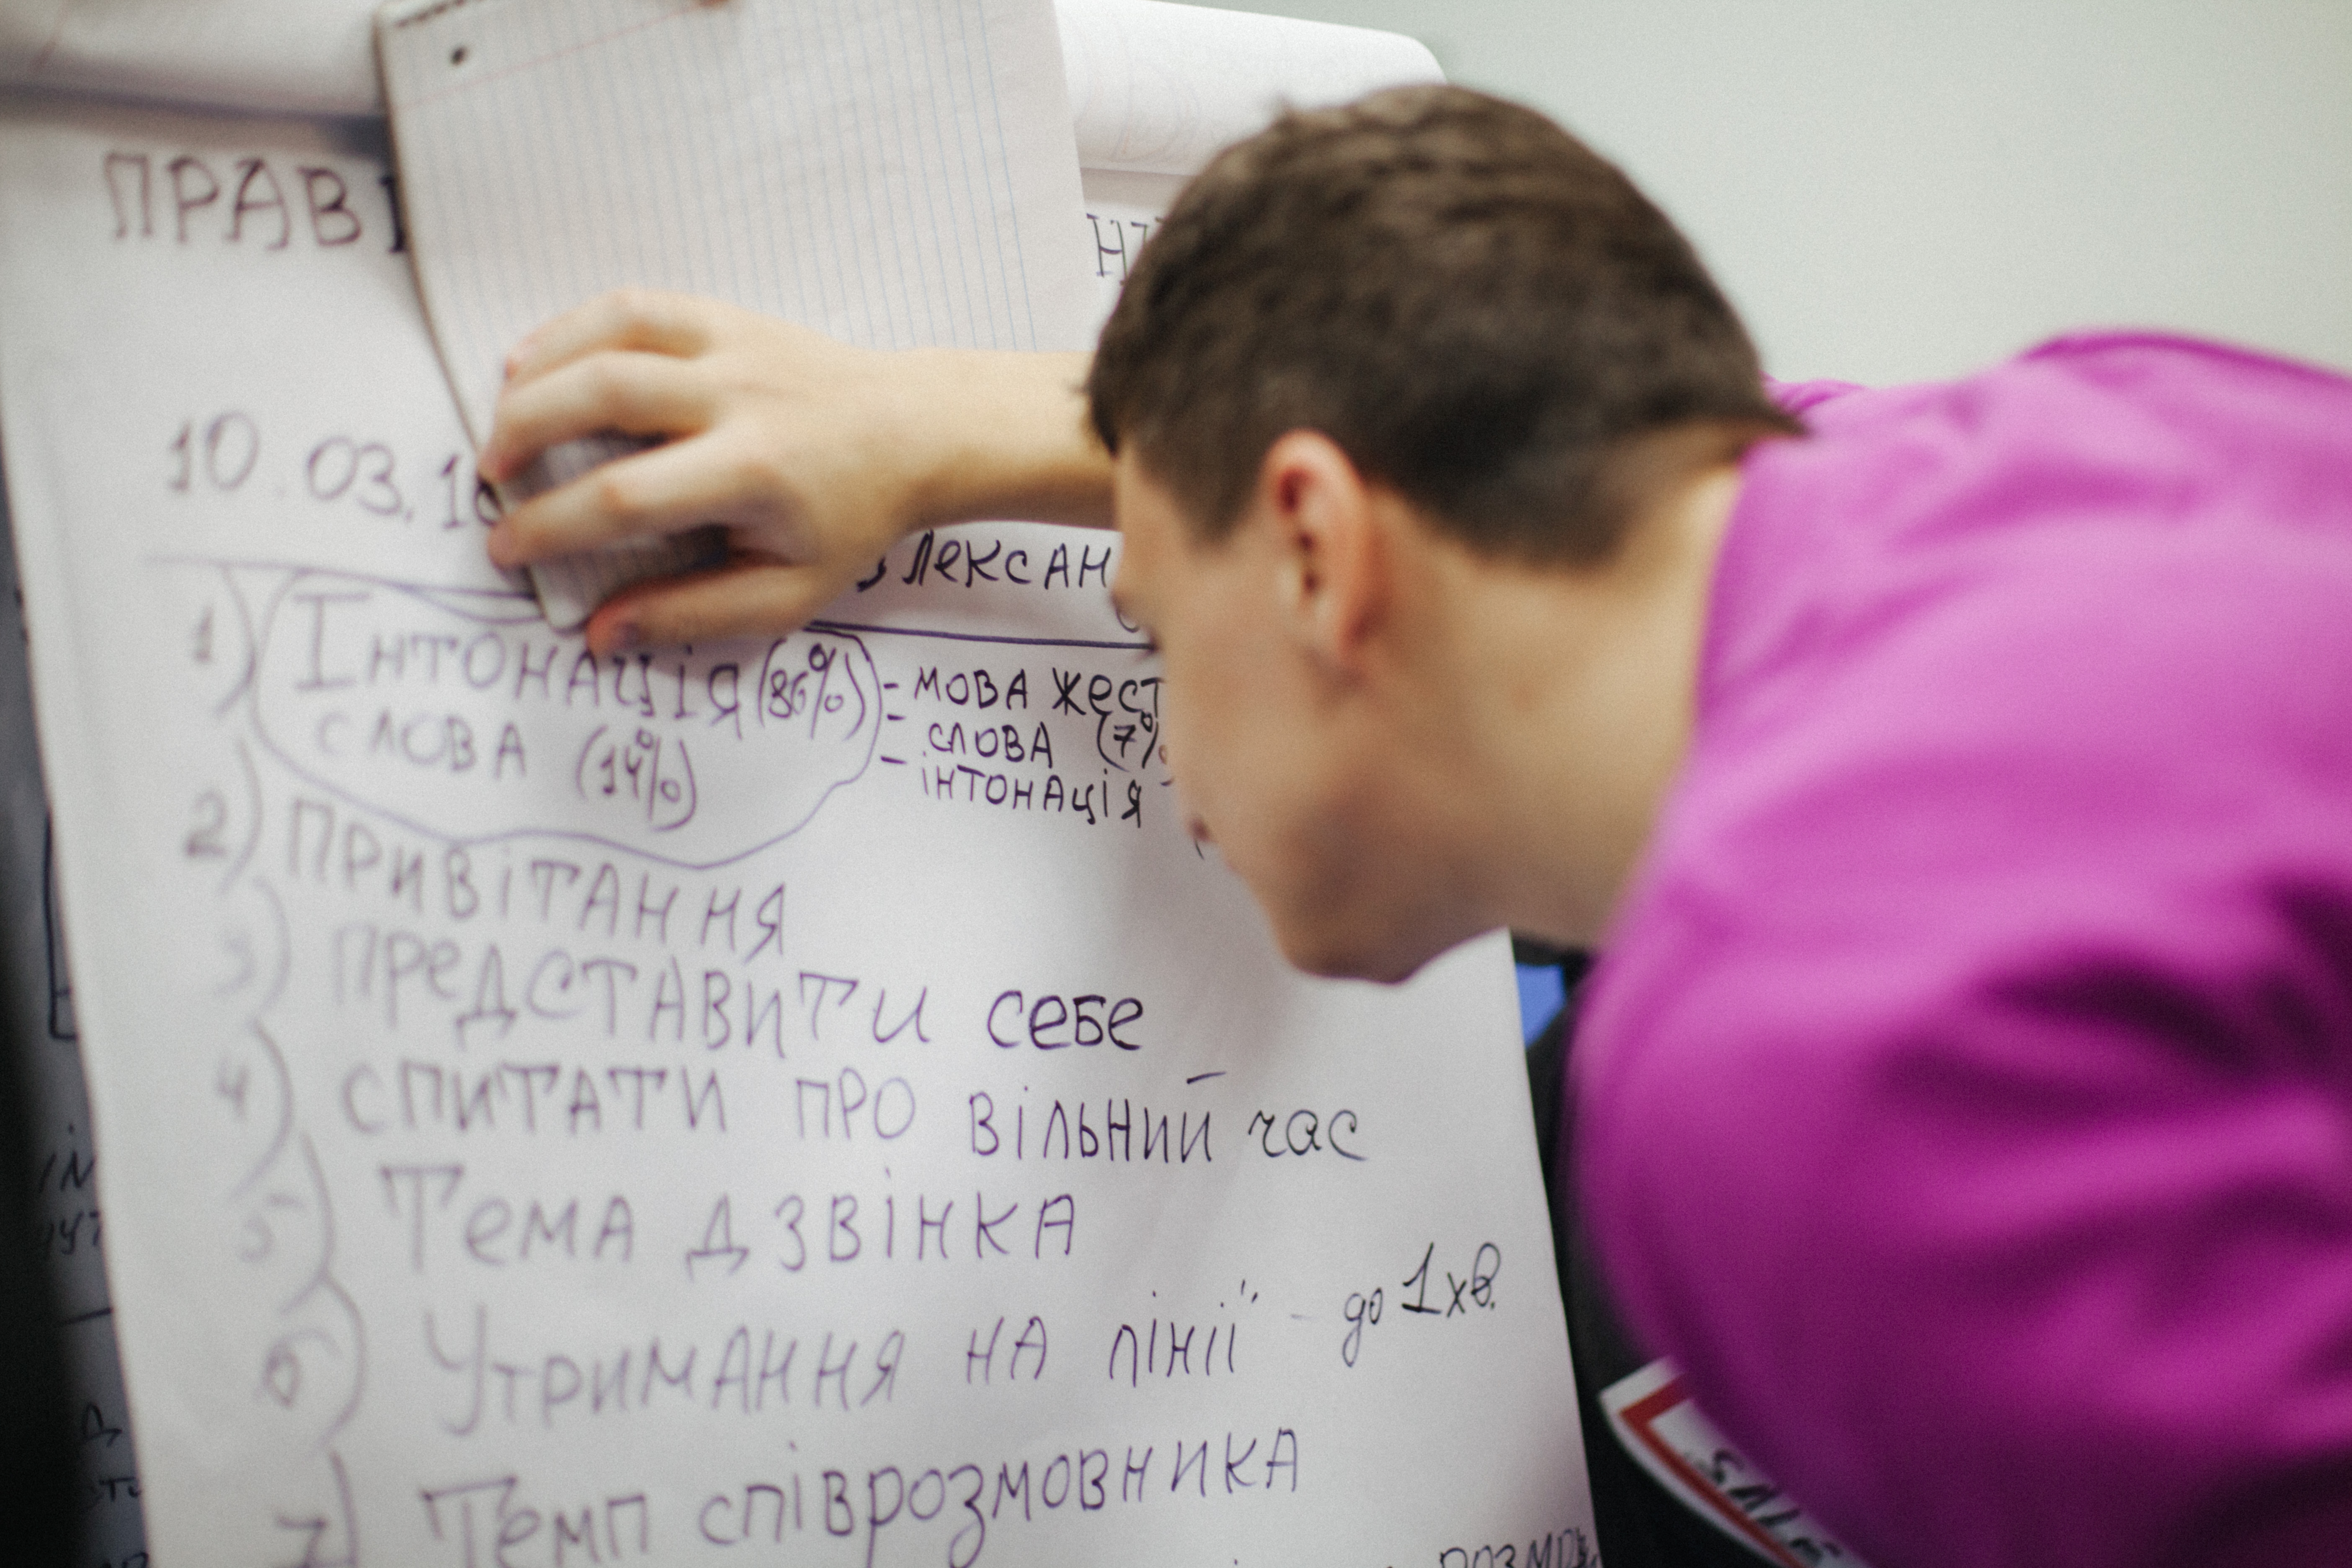 ПРАВ
10.03.1
лексан
1) Інтонація (86%) - мова жест
слова (14%) - слова (7%
- інтонація
2) Привітання
3) Представити себе
4) Спитати про вільний час
5) Тема дзвінка
6) Утримання на лінії - до 1хв.
7) Темп співрозмовника
розмов
SALE